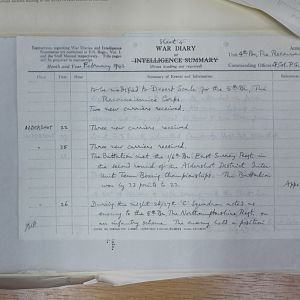 Instructions regarding War Diaries and Intelligence
Summaries are contained in F.S. Regs., Vol. I
and the Staff Manual respectively. Title pages
will be prepared in manuscript.
Month and Year February 1943
Sheet 2
WAR DIARY
or
INTELLIGENCE SUMMARY
(Erase heading not required)
Army
Unit 5th Bn, The Reconnai
Commanding Officer
Place
Date
Hour
Summary of Events and Information
to be modified to Desert Scale for the 5th Bn, The
Reconnaissance Corps
Two new carriers received.
ALDERSHOT 22 Three new carriers received
" 25 Three new carriers received.
The Battalion met the 1/6th Bn. East Surrey Regt in
the second round of the Aldershot District Inter
Unit Team Boxing Championships. The Battalion
won by 33 points to 22.
Appx
" 26 During the night 26/27th 'C' Squadron acted as
enemy to the 5th Bn The Northamptonshire Regt. on
an infantry scheme. The enemy held a position